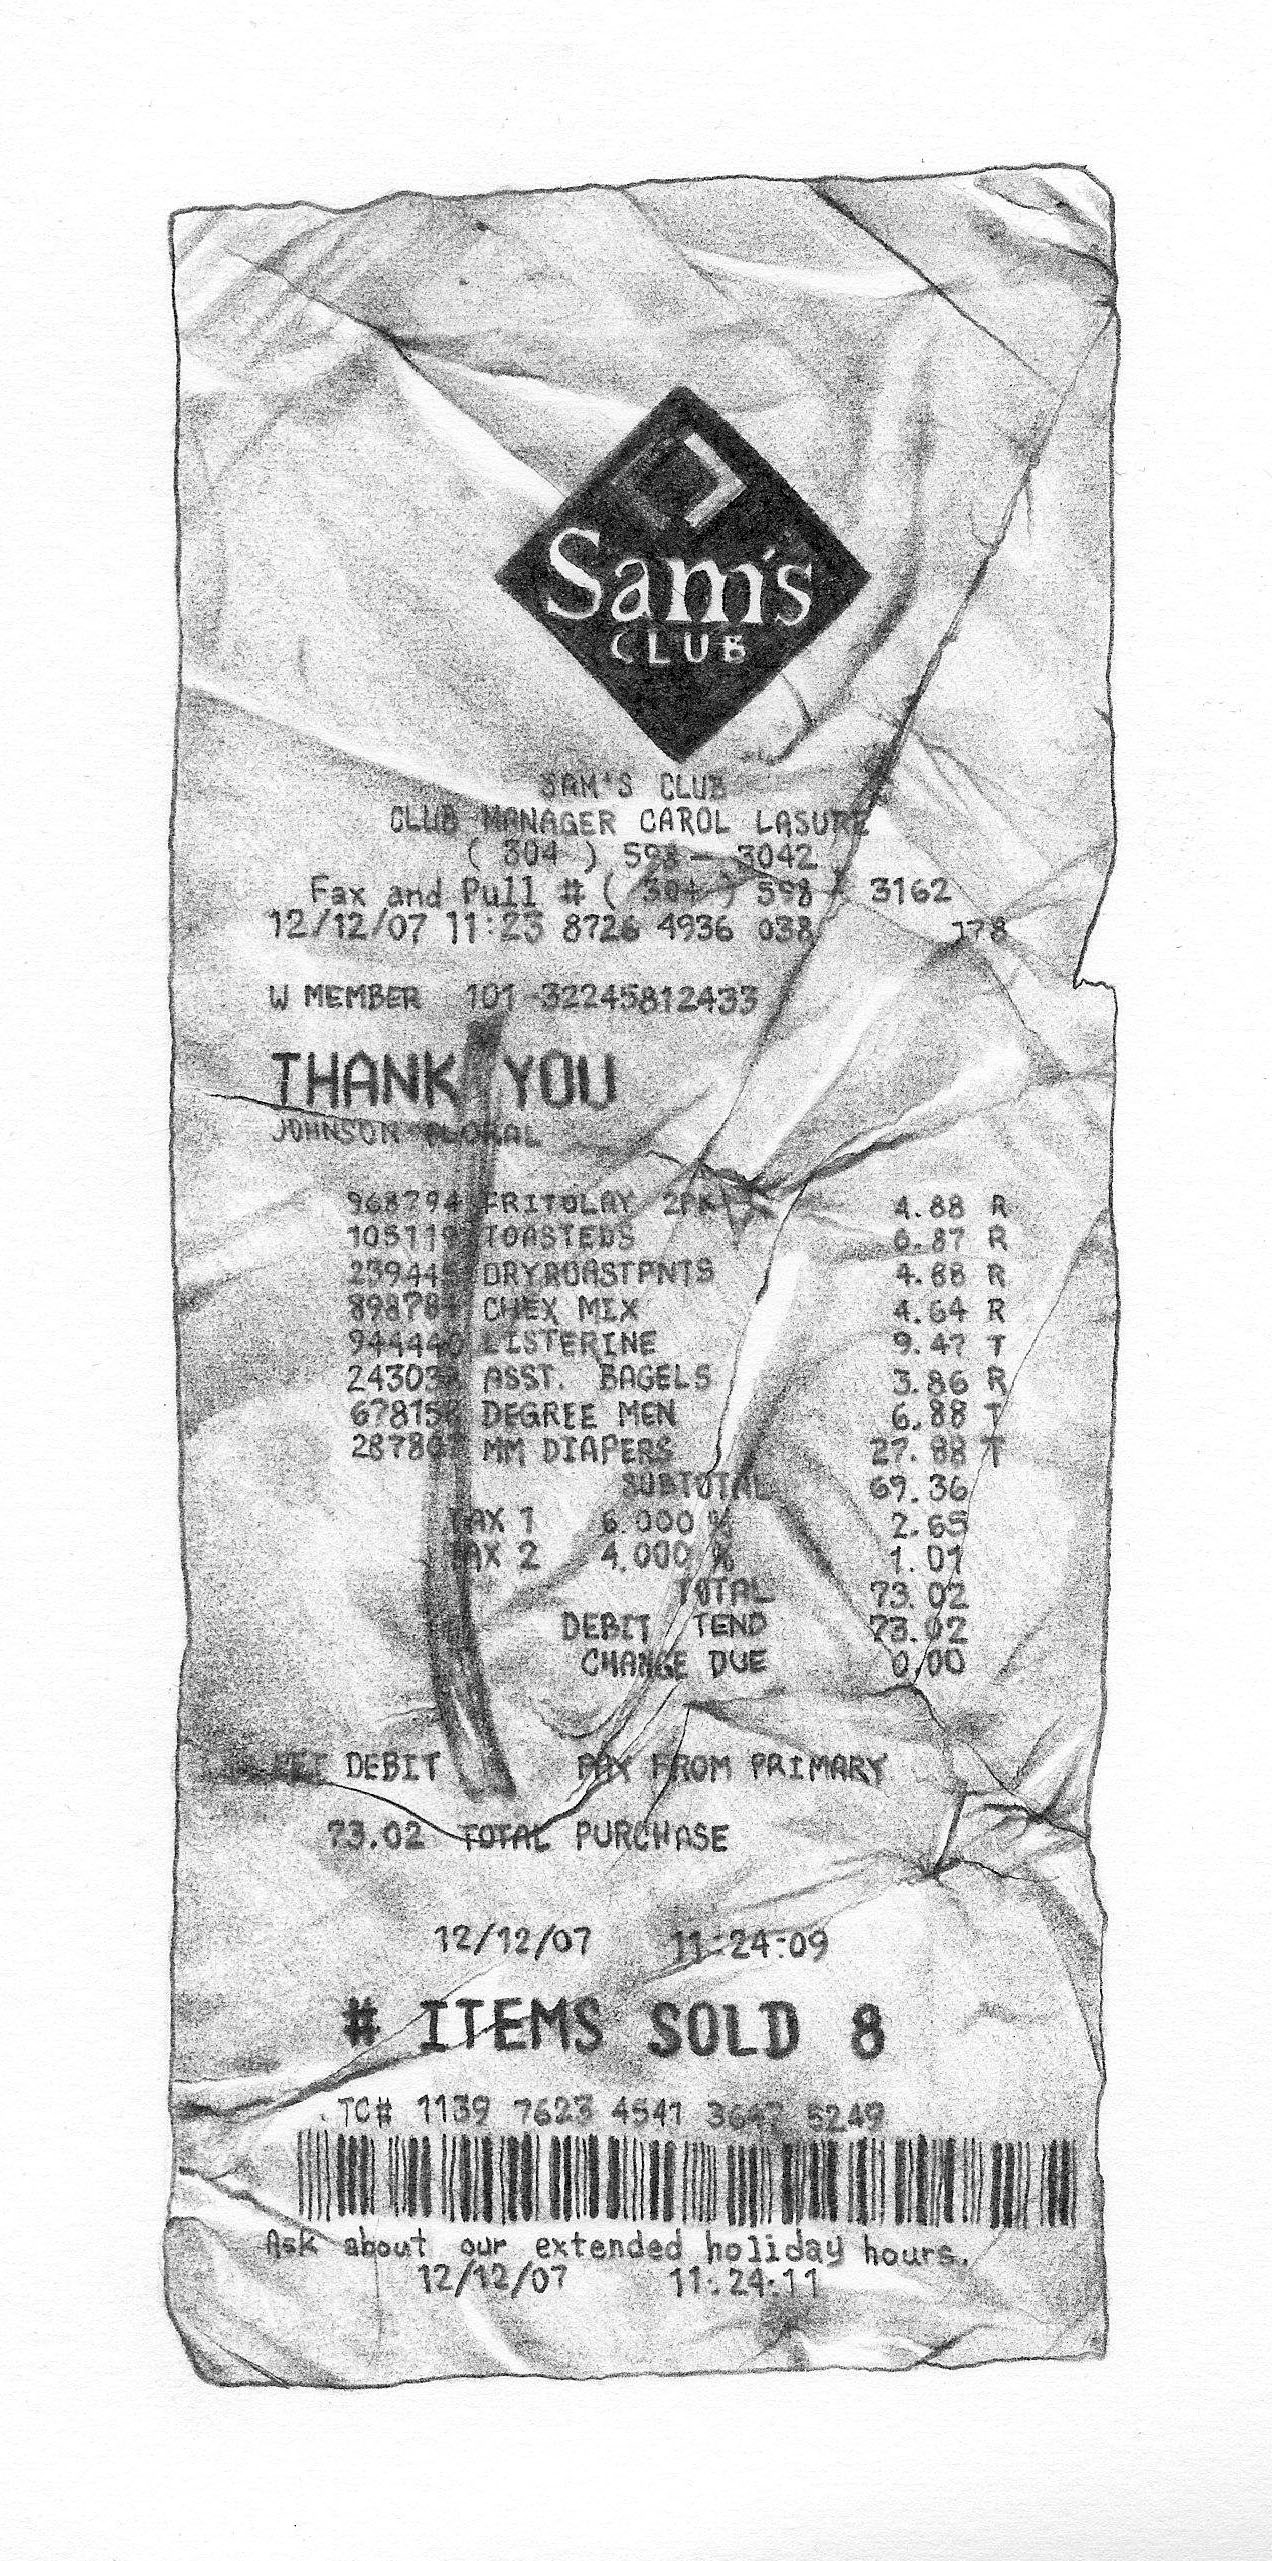 Sam's
CLUB
SAM'S CLUB
CLUB MANAGER CAROL LASURE
( 304 ) 598 - 3042
Fax and Pull # ( 304 ) 598 3162
12/12/07 11:23 8726 4936 038 178
W MEMBER 101-32245812433
THANK YOU
JOHNSON FLORAL
968794 FRITOLAY 2PK 4.88 R
105119 TOASTEDS 6.87 R
DRYROASTPNTS 4.88 R
CHEX MIX 4.64 R
944440 LISTERINE 9.47 T
ASST. BAGELS 3.86 R
DEGREE MEN 6.88 T
MM DIAPERS 27.88 T
SUBTOTAL 69.36
TAX 1 6.000 % 2.65
TAX 2 4.000 % 1.01
TOTAL 73.02
DEBIT TEND 73.02
CHANGE DUE 0.00
DEBIT PAY FROM PRIMARY
73.02 TOTAL PURCHASE
12/12/07 11:24:09
# ITEMS SOLD 8
TC# 1139 7623 4541 5249
Ask about our extended holiday hours.
12/12/07 11:24:11